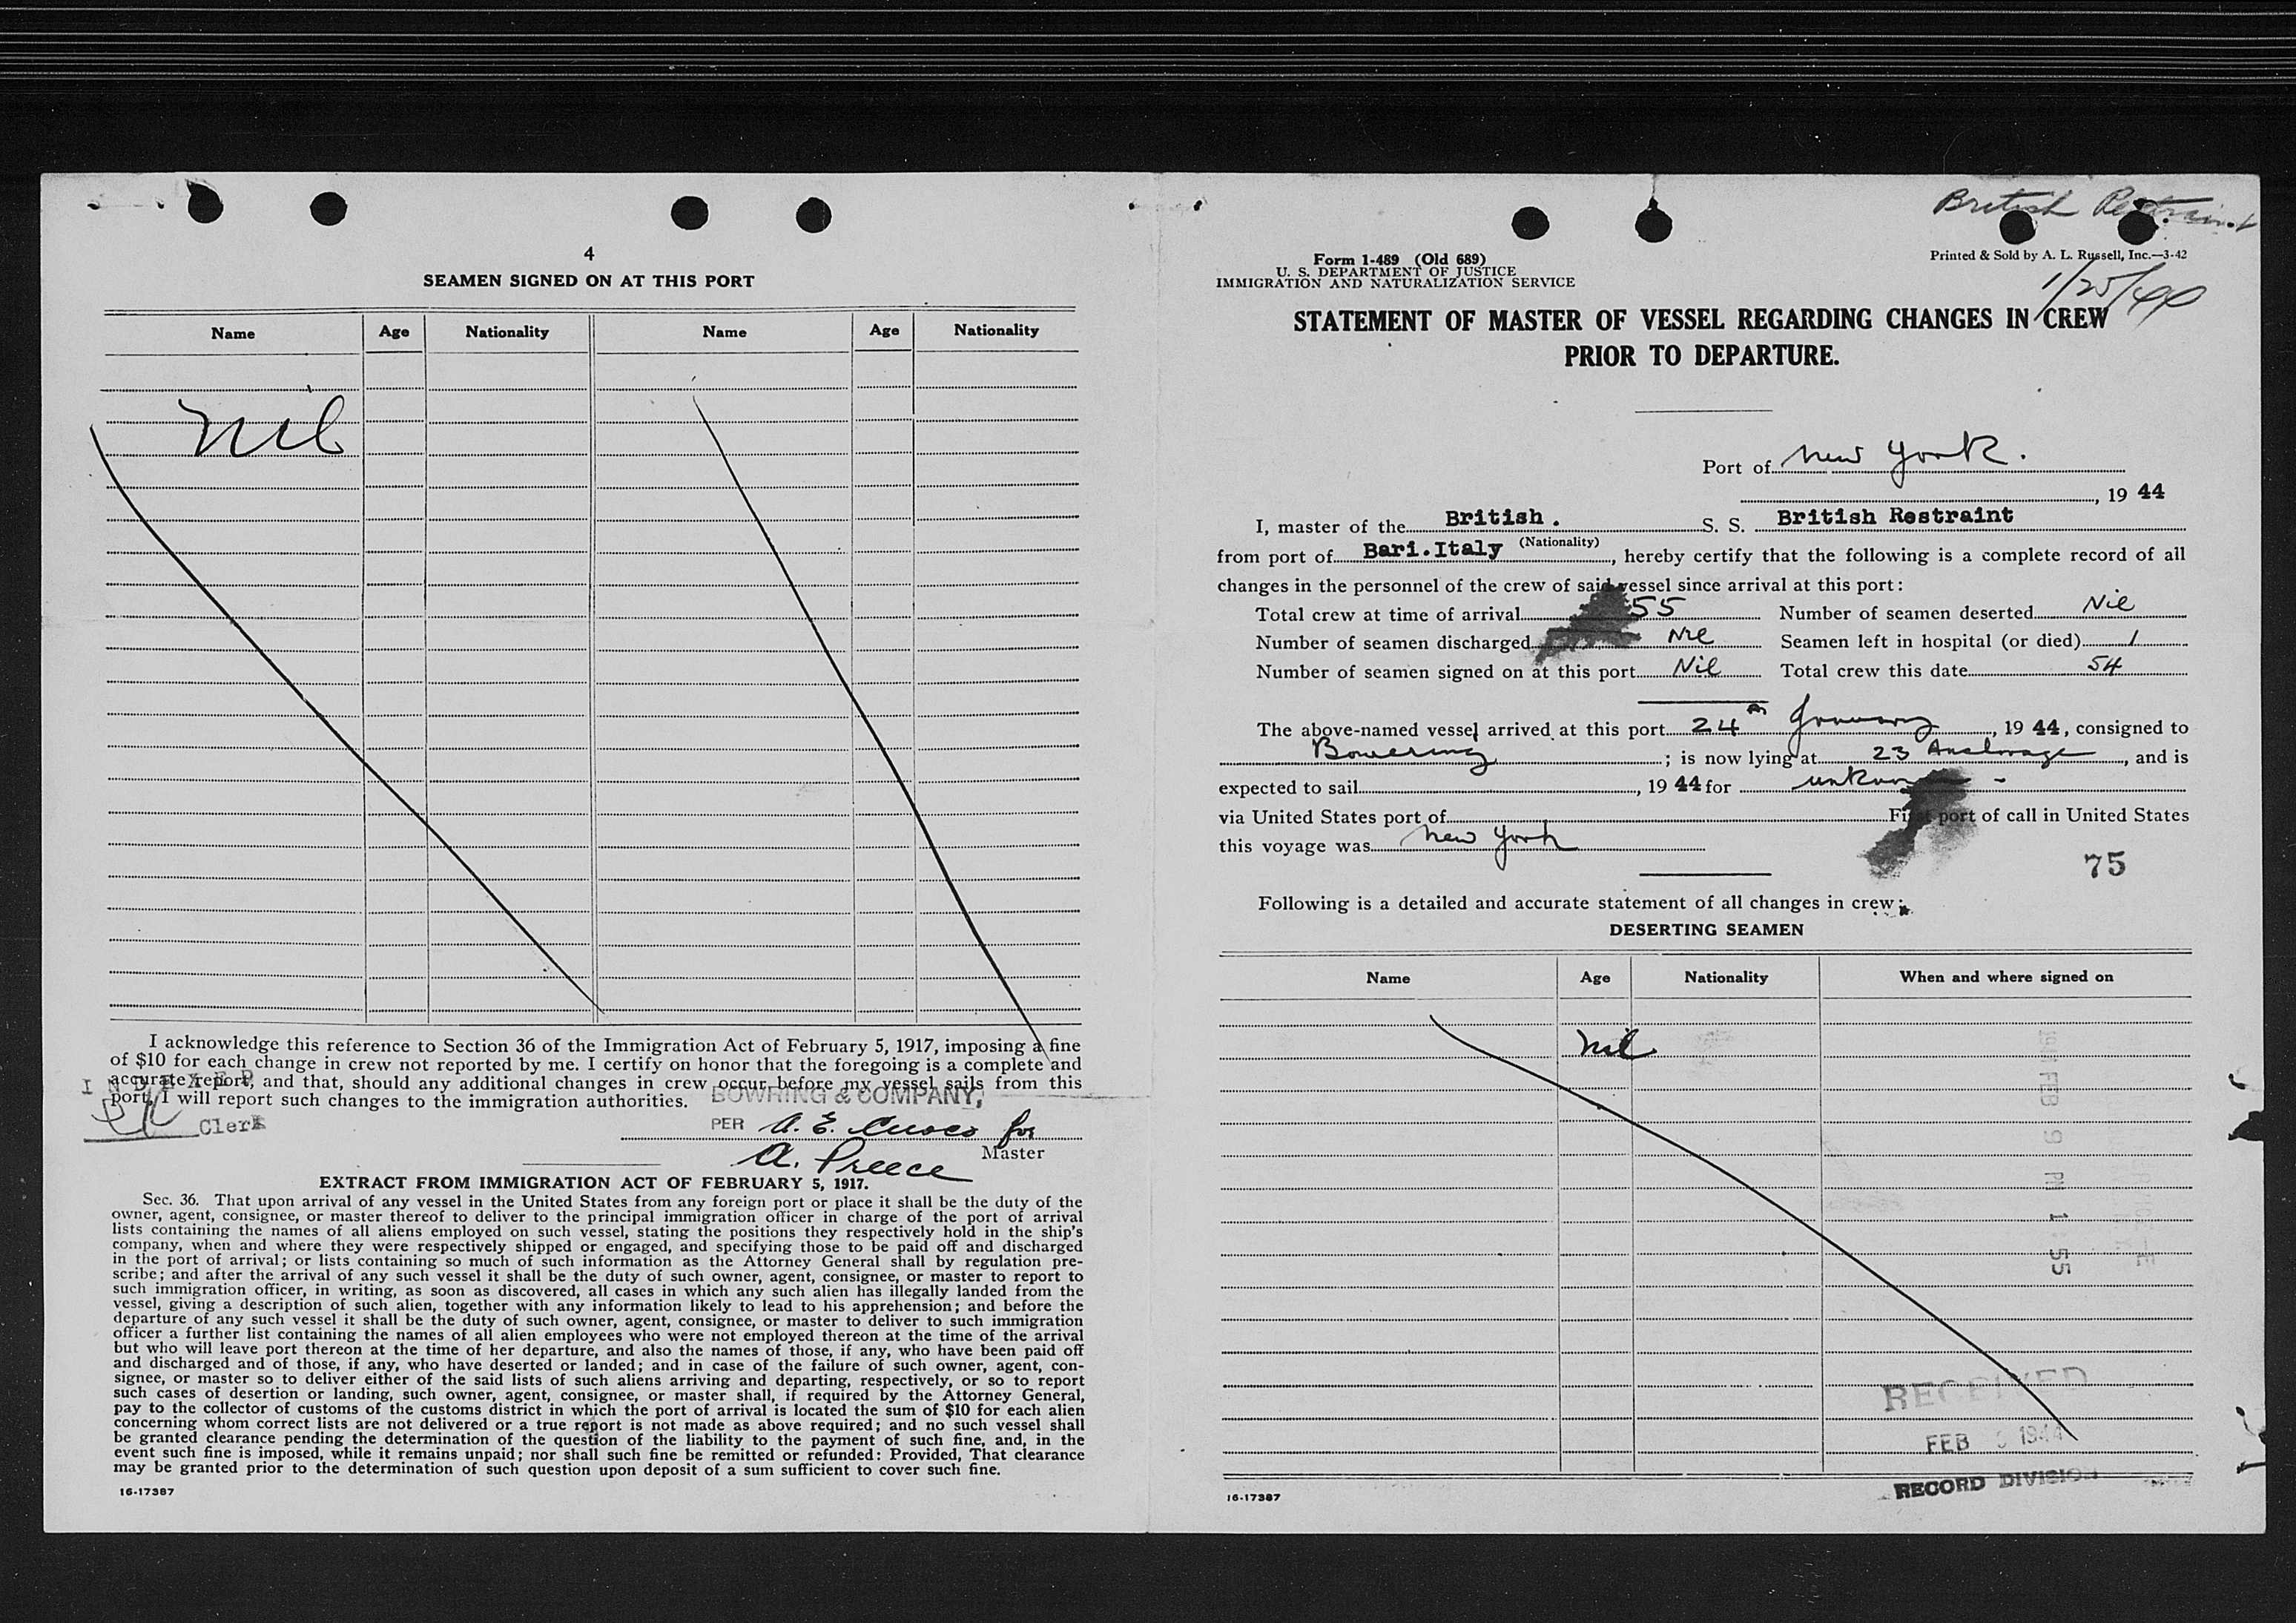 4
SEAMEN SIGNED ON AT THIS PORT
Name Age Nationality Name Age Nationality
Nil
I acknowledge this reference to Section 36 of the Immigration Act of February 5, 1917, imposing a fine
of $10 for each change in crew not reported by me. I certify on honor that the foregoing is a complete and
accurate report, and that, should any additional changes in crew occur before my vessel sails from this
port, I will report such changes to the immigration authorities.
INDEXED
Clerk
BOWRING & COMPANY,
PER A. E. for
A. Preece Master
EXTRACT FROM IMMIGRATION ACT OF FEBRUARY 5, 1917.
Sec. 36. That upon arrival of any vessel in the United States from any foreign port or place it shall be the duty of the
owner, agent, consignee, or master thereof to deliver to the principal immigration officer in charge of the port of arrival
lists containing the names of all aliens employed on such vessel, stating the positions they respectively hold in the ship's
company, when and where they were respectively shipped or engaged, and specifying those to be paid off and discharged
in the port of arrival; or lists containing so much of such information as the Attorney General shall by regulation pre-
scribe; and after the arrival of any such vessel it shall be the duty of such owner, agent, consignee, or master to report to
such immigration officer, in writing, as soon as discovered, all cases in which any such alien has illegally landed from the
vessel, giving a description of such alien, together with any information likely to lead to his apprehension; and before the
departure of any such vessel it shall be the duty of such owner, agent, consignee, or master to deliver to such immigration
officer a further list containing the names of all alien employees who were not employed thereon at the time of the arrival
but who will leave port thereon at the time of her departure, and also the names of those, if any, who have been paid off
and discharged and of those, if any, who have deserted or landed; and in case of the failure of such owner, agent, con-
signee, or master so to deliver either of the said lists of such aliens arriving and departing, respectively, or so to report
such cases of desertion or landing, such owner, agent, consignee, or master shall, if required by the Attorney General,
pay to the collector of customs of the customs district in which the port of arrival is located the sum of $10 for each alien
concerning whom correct lists are not delivered or a true report is not made as above required; and no such vessel shall
be granted clearance pending the determination of the question of the liability to the payment of such fine, and, in the
event such fine is imposed, while it remains unpaid; nor shall such fine be remitted or refunded: Provided, That clearance
may be granted prior to the determination of such question upon deposit of a sum sufficient to cover such fine.
16-17387
British Restraint
Form 1-489 (Old 689)
U. S. DEPARTMENT OF JUSTICE
IMMIGRATION AND NATURALIZATION SERVICE
Printed & Sold by A. L. Russell, Inc.—3-42
1/25/44
STATEMENT OF MASTER OF VESSEL REGARDING CHANGES IN CREW
PRIOR TO DEPARTURE.
Port of New York.
, 19 44
I, master of the British. S. S. British Restraint
(Nationality)
from port of Bari. Italy, hereby certify that the following is a complete record of all
changes in the personnel of the crew of said vessel since arrival at this port:
Total crew at time of arrival 55 Number of seamen deserted Nil
Number of seamen discharged Nil Seamen left in hospital (or died) 1
Number of seamen signed on at this port Nil Total crew this date 54
The above-named vessel arrived at this port 24th January, 19 44, consigned to
Bowering; is now lying at 23 Anchorage, and is
expected to sail, 19 44 for unknown -
via United States port of First port of call in United States
this voyage was New York
75
Following is a detailed and accurate statement of all changes in crew:
DESERTING SEAMEN
Name Age Nationality When and where signed on
Nil
FEB 9 PM 1 55
RECEIVED
FEB 1944
RECORD DIVISION
16-17387